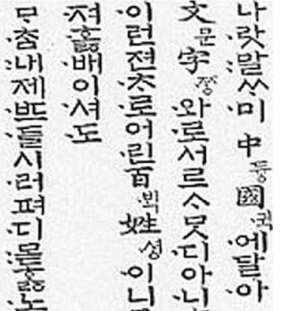 나·랏:말ᄊᆞ·미中듕國귁·에달·아
文문字ᄍᆞᆼ·와·로서르ᄉᆞᄆᆞᆺ디아·니
·이런젼ᄎᆞ·로어·린百·ᄇᆡᆨ姓·셩·이니
·져·홇·배이·셔·도
ᄆᆞ·ᄎᆞᆷ:내제·ᄠᅳ·들시·러펴·디:몯ᄒᆞᇙ·노